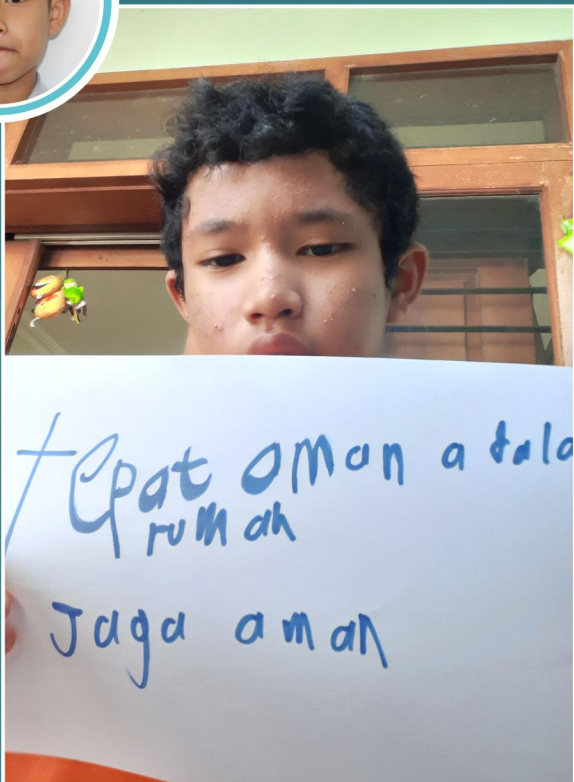 tepat aman adala
rumah
Jaga aman